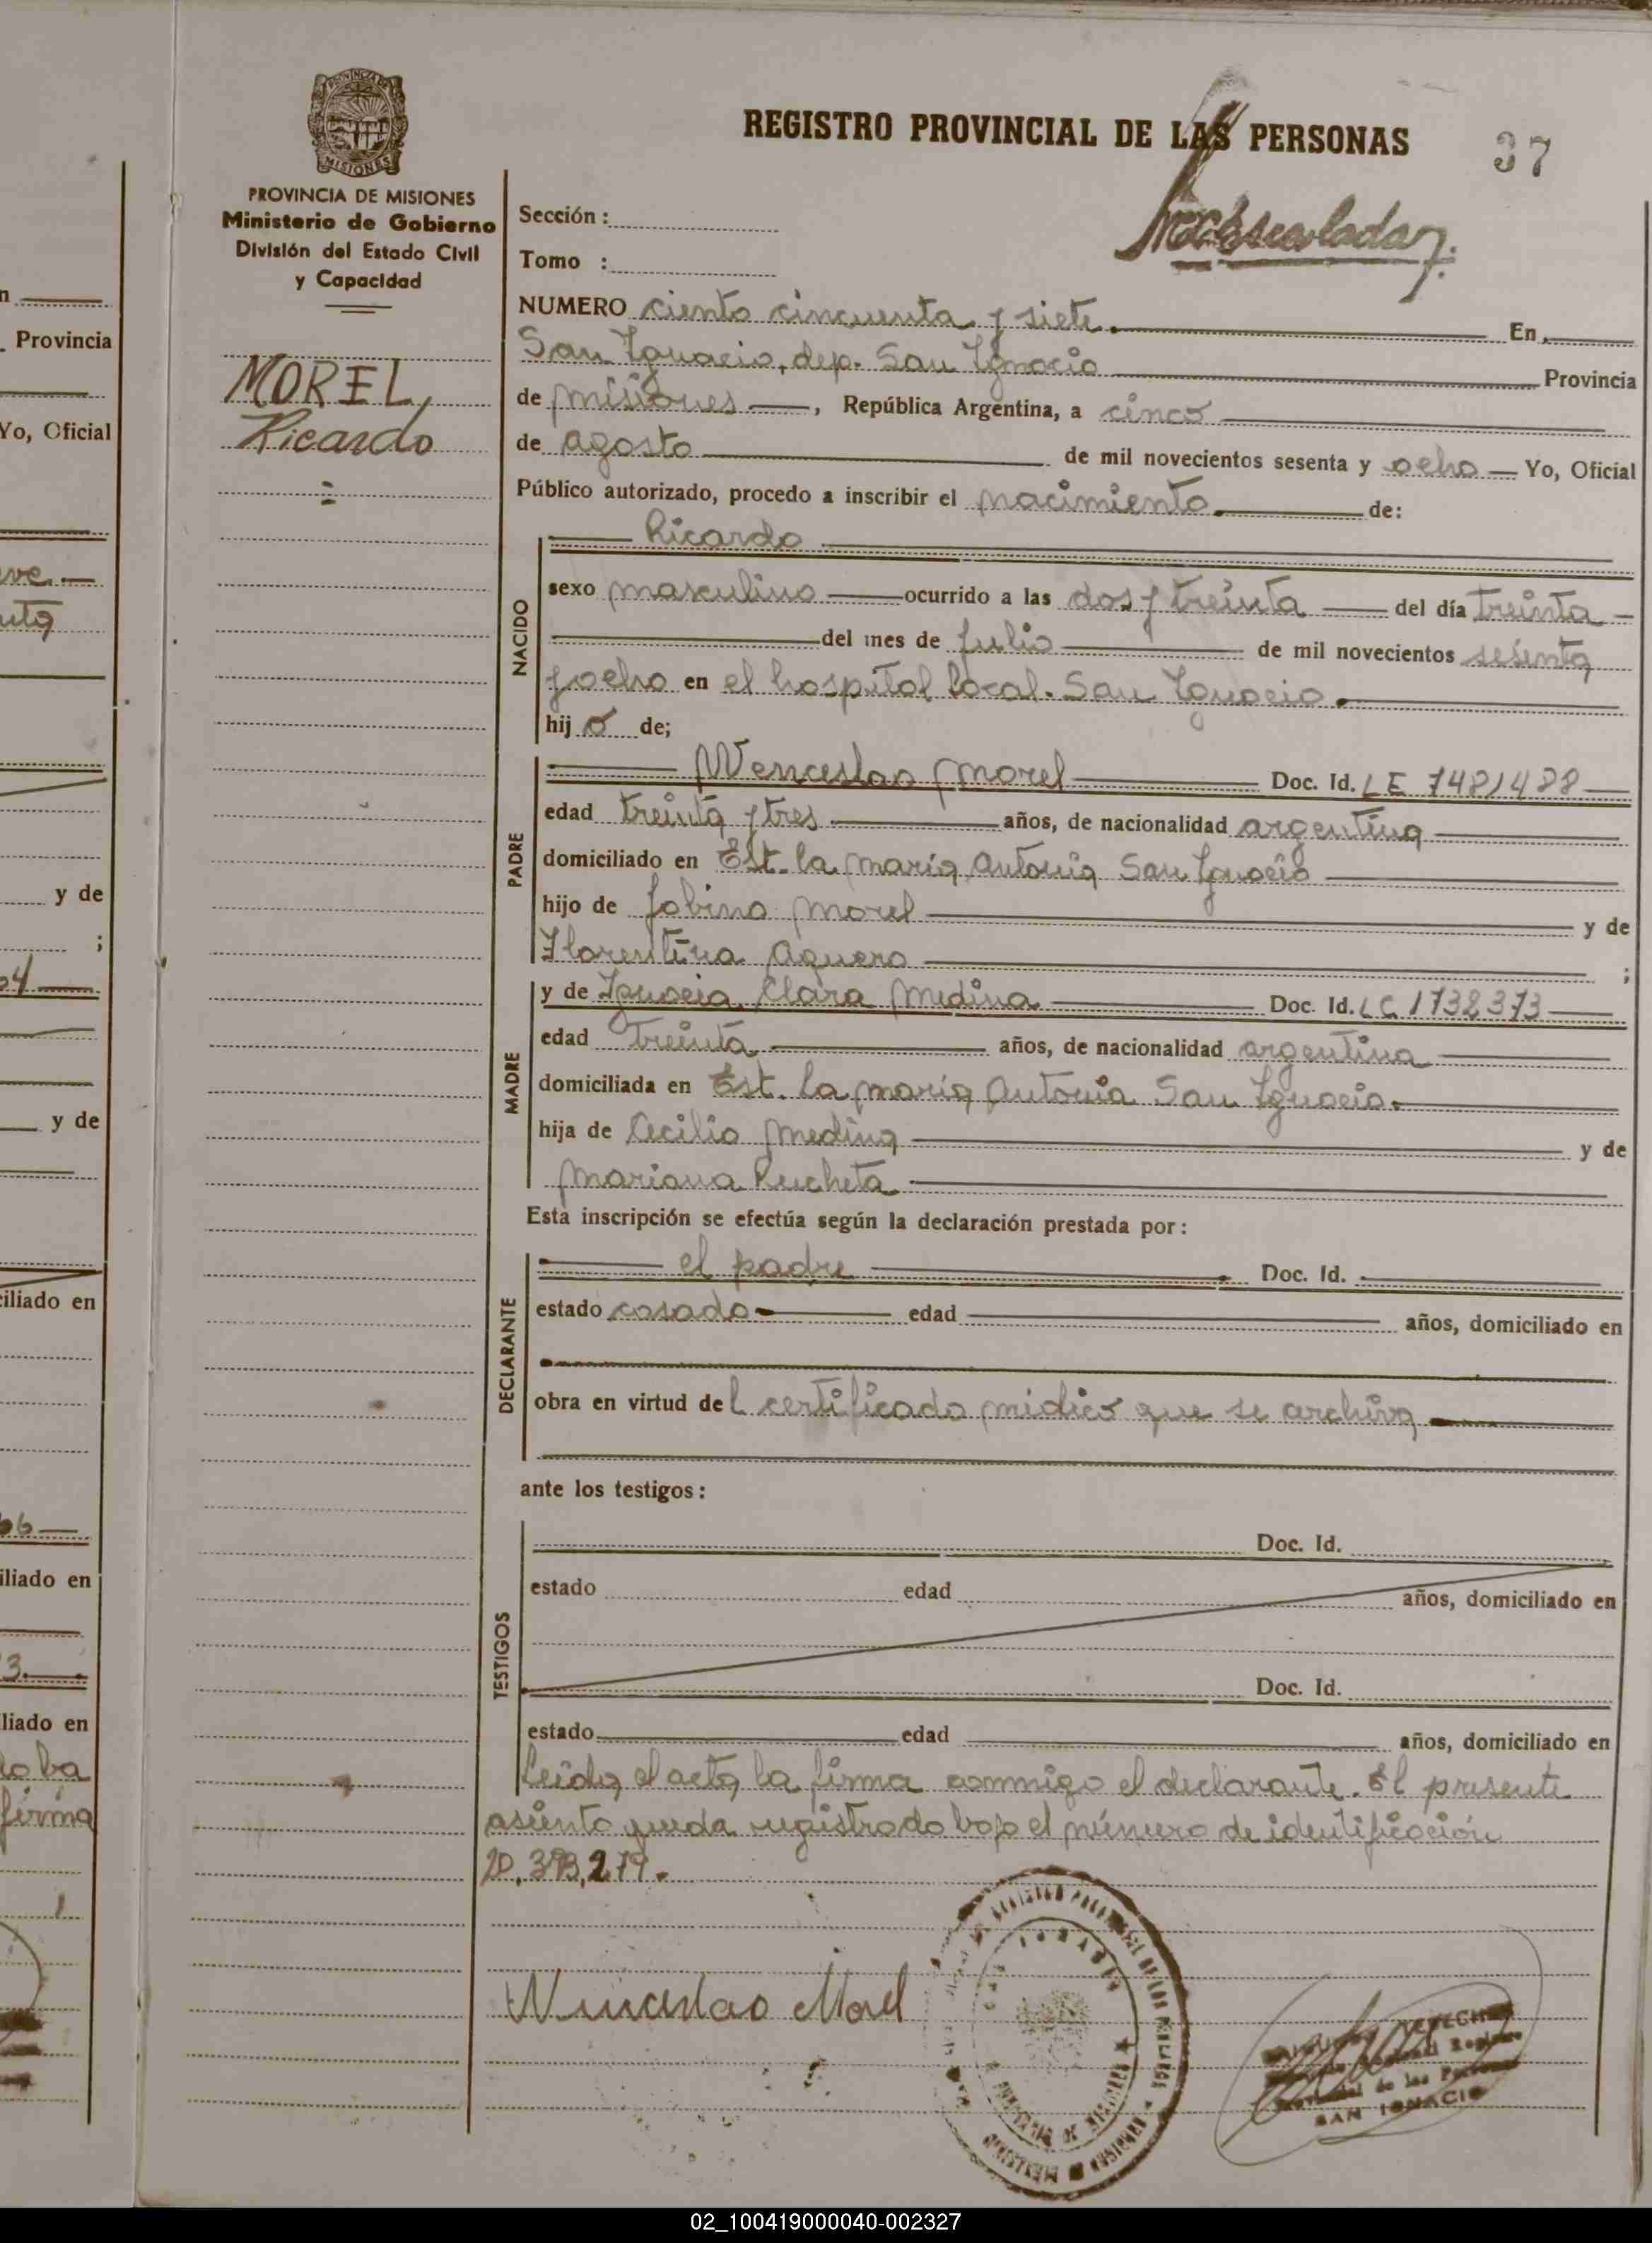 REGISTRO PROVINCIAL DE LAS PERSONAS
37
MISIONES
PROVINCIA DE MISIONES
Ministerio de Gobierno
División del Estado Civil
y Capacidad
MOREL,
Ricardo
Sección :
Tomo :
NUMERO ciento cincuenta y siete. En
San Ignacio, dep. San Ignacio Provincia
de misiones, República Argentina, a cinco
de agosto de mil novecientos sesenta y ocho Yo, Oficial
Público autorizado, procedo a inscribir el nacimiento. de:
NACIDO
Ricardo
sexo masculino ocurrido a las dos y treinta del día treinta
del mes de julio de mil novecientos sesenta
y ocho en el hospital local. San Ignacio.
hijo de;
PADRE
Wenceslao Morel Doc. Id. LE 7481488
edad treinta y tres años, de nacionalidad argentina
domiciliado en Est. la maria Antonia San Ignacio
hijo de Morel y de
Florentina Aquero ;
MADRE
y de Ignacia Clara Medina Doc. Id. LC 1732373
edad treinta años, de nacionalidad argentina
domiciliada en Est. la maria Antonia San Ignacio.
hija de Cecilio Medina y de
Mariana
Esta inscripción se efectúa según la declaración prestada por :
DECLARANTE
el padre Doc. Id.
estado casado edad años, domiciliado en
obra en virtud del certificado midico que se archiva
ante los testigos :
TESTIGOS
Doc. Id.
estado edad años, domiciliado en
Doc. Id.
estado edad años, domiciliado en
Leida el acta la firma conmigo el declarante. El presente
asiento queda registrado bajo el número de identificación
20.393.279.
Wenceslao Morel
SAN IGNACIO
Provincia
Yo, Oficial
y de
;
y de
iliado en
iliado en
liado en
firma
02_100419000040-002327